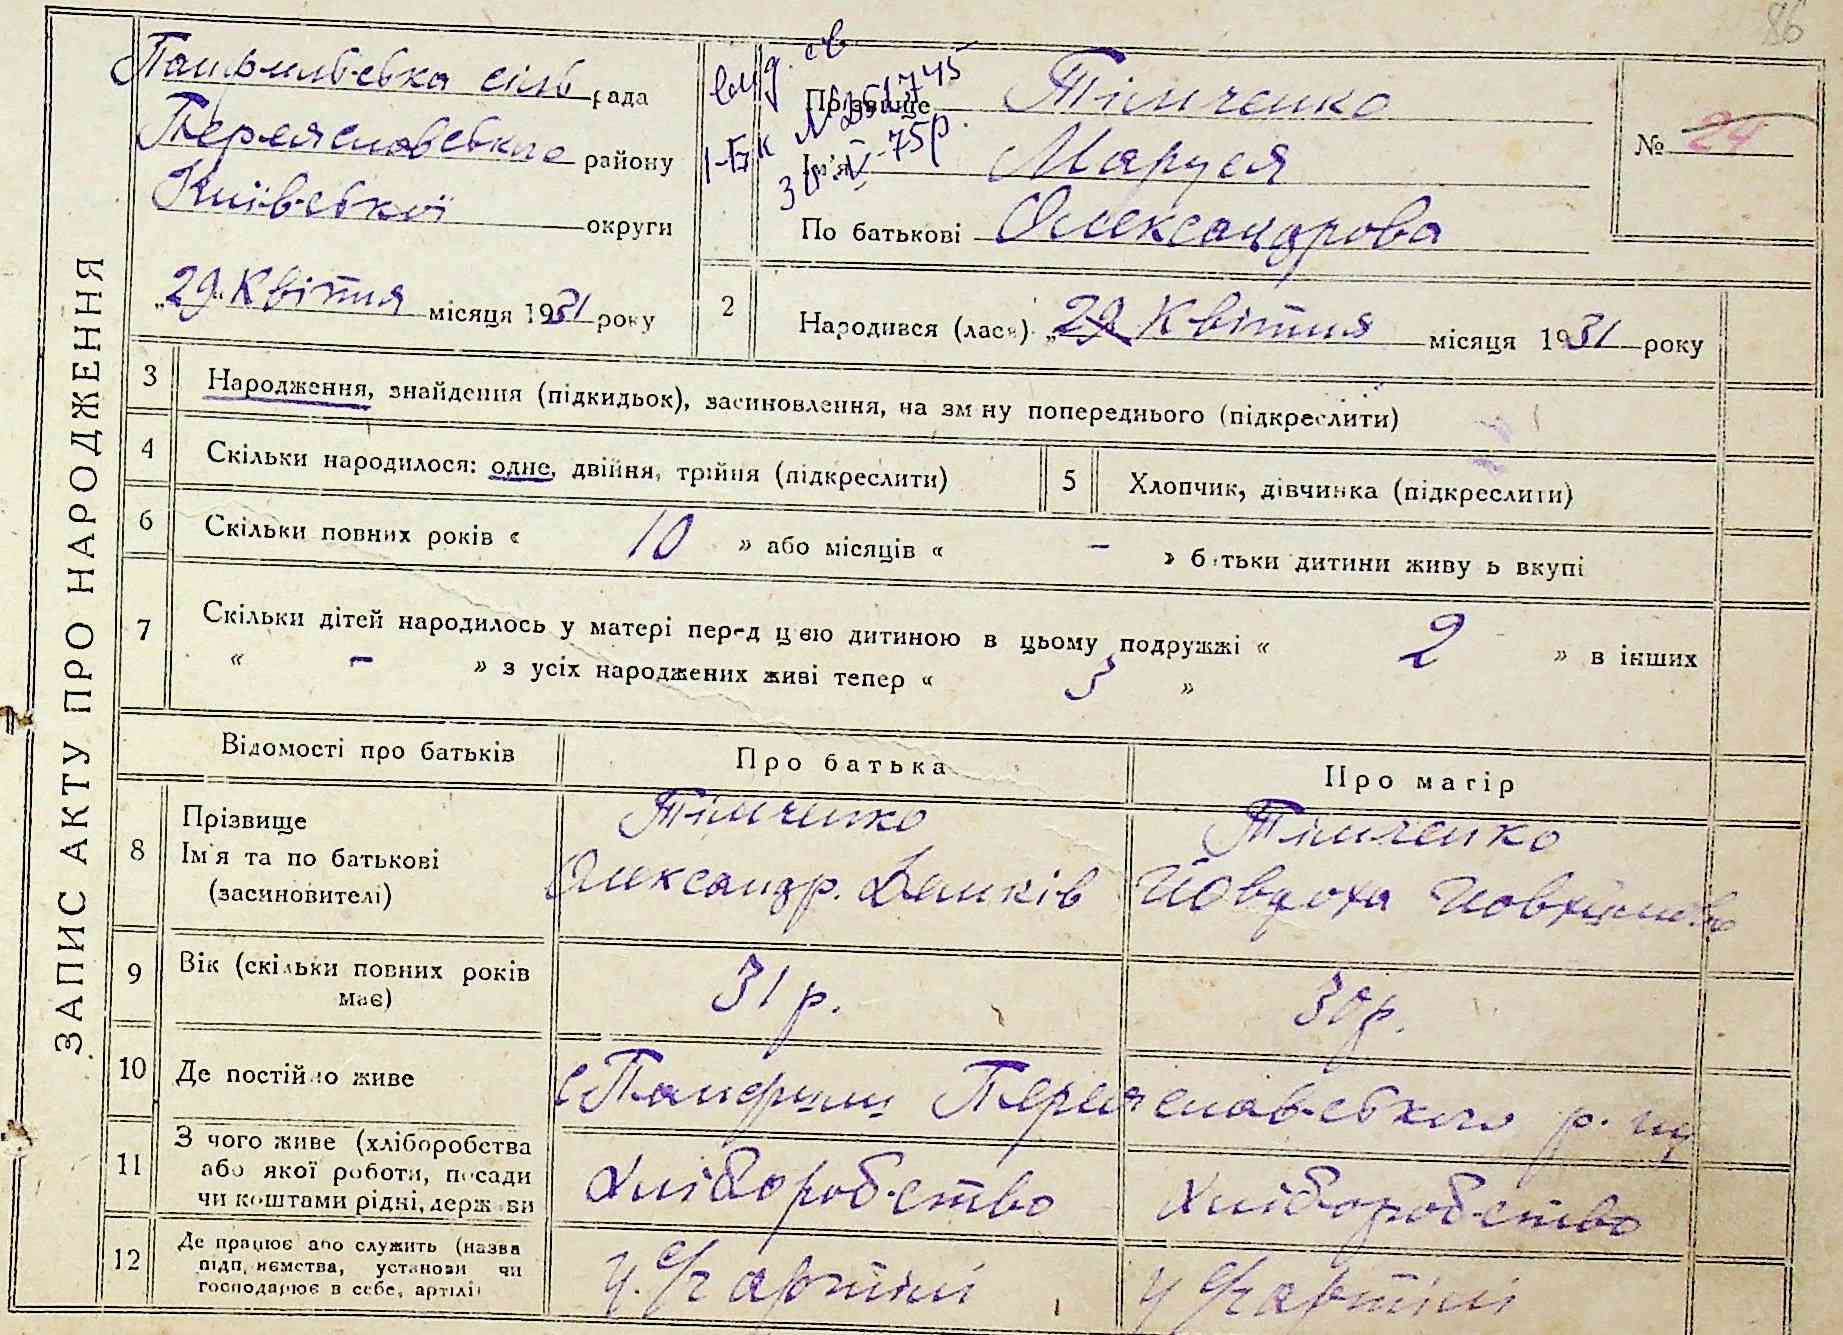 86
ЗАПИС АКТУ ПРО НАРОДЖЕННЯ
сіль рада
Переяславського району
Київської округи
„29“ Квітня місяця 1931 року
вид. св
І-БК №
30 V-75р.
Прізвище Тімченко
Ім'я Маруся
По батькові Олександрова
№ 24
2 Народився (лася) „29 Квітня місяця 1931 року
3 Народження, знайдення (підкидьок), засиновлення, на зміну попереднього (підкреслити)
4 Скільки народилося: одне, двійня, трійня (підкреслити)
5 Хлопчик, дівчинка (підкреслити)
6 Скільки повних років « 10 » або місяців « - » батьки дитини живуть вкупі
7 Скільки дітей народилось у матері перед цією дитиною в цьому подружжі « 2 » в інших
« - » з усіх народжених живі тепер « 3 »
Відомості про батьків Про батька Про матір
8 Прізвище
Ім'я та по батькові
(засиновителі)
Тімченко
Олександр.
Тімченко
Йовдоха
9 Вік (скільки повних років
має)
31 р.
30 р.
10 Де постійно живе
с Панфили Переяславського р.
11 З чого живе (хліборобства
або якої роботи, посади
чи коштами рідні, держави
хліборобство
хліборобство
12 Де працює або служить (назва
підприємства, установи чи
господарює в себе, артілі)
у с/г артілі
у с/г артілі